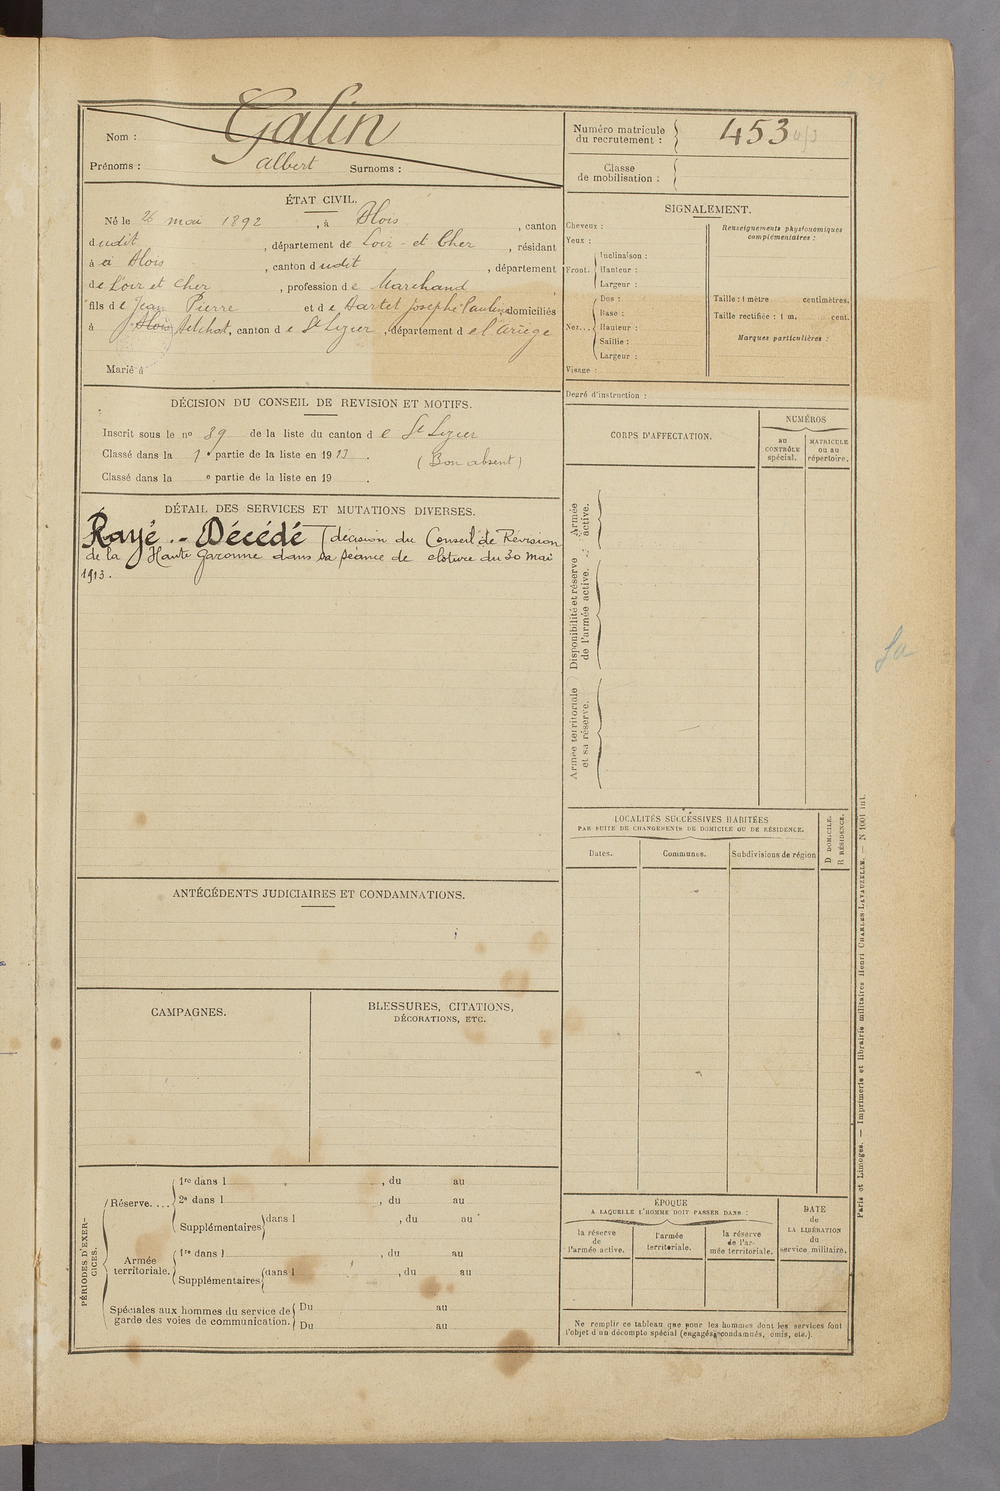 Nom : Galin
Prénoms : Albert Surnoms :
Numéro matricule du recrutement : 453
Classe de mobilisation :
ÉTAT CIVIL.
Né le 26 mai 1892, à Blois, canton
dudit, département de Loir-et Cher, résidant
à Blois, canton dudit, département
de Loir et Cher, profession de Marchand
fils de Jean Pierre et de Josephe Pauline domiciliés
à Blois, canton de St Lizier, département de l'Ariège
Marié à
DÉCISION DU CONSEIL DE REVISION ET MOTIFS.
Inscrit sous le no 39 de la liste du canton de St Lizier
Classé dans la 1e partie de la liste en 1913. (Bon absent)
Classé dans la e partie de la liste en 19 .
DÉTAIL DES SERVICES ET MUTATIONS DIVERSES.
Rayé .- Décédé (décision du Conseil de Revision
de la Haute Garonne dans sa séance de clôture du 30 mai
1913.
ANTÉCÉDENTS JUDICIAIRES ET CONDAMNATIONS.
CAMPAGNES.
BLESSURES, CITATIONS,
DÉCORATIONS, ETC.
PÉRIODES D'EXERCICES.
Réserve....
1re dans l , du au
2e dans l , du au
Supplémentaires dans l , du au
Armée territoriale.
1re dans l , du au
Supplémentaires dans l , du au
Spéciales aux hommes du service de garde des voies de communication.
Du au
Du au
SIGNALEMENT.
Cheveux :
Yeux :
Front.
Inclinaison :
Hauteur :
Largeur :
Nez...
Dos :
Base :
Hauteur :
Saillie :
Largeur :
Visage :
Renseignements physionomiques
complémentaires :
Taille : 1 mètre centimètres.
Taille rectifiée : 1 m. cent.
Marques particulières :
Degré d'instruction :
CORPS D'AFFECTATION.
NUMÉROS
au CONTRÔLE spécial.
MATRICULE ou au répertoire.
Armée active.
Disponibilité et réserve de l'armée active.
Armée territoriale et sa réserve.
LOCALITÉS SUCCESSIVES HABITÉES
PAR SUITE DE CHANGEMENTS DE DOMICILE OU DE RÉSIDENCE.
Dates.
Communes.
Subdivisions de région
D DOMICILE.
R RÉSIDENCE.
ÉPOQUE
A LAQUELLE L'HOMME DOIT PASSER DANS :
la réserve de l'armée active.
l'armée territoriale.
la réserve de l'armée territoriale.
DATE de LA LIBÉRATION du service militaire.
Ne remplir ce tableau que pour les hommes dont les services font
l'objet d'un décompte spécial (engagés, condamnés, omis, etc.).
Paris et Limoges. — Imprimerie et librairie militaires Henri CHARLES-LAVAUZELLE. — N 1001 int.